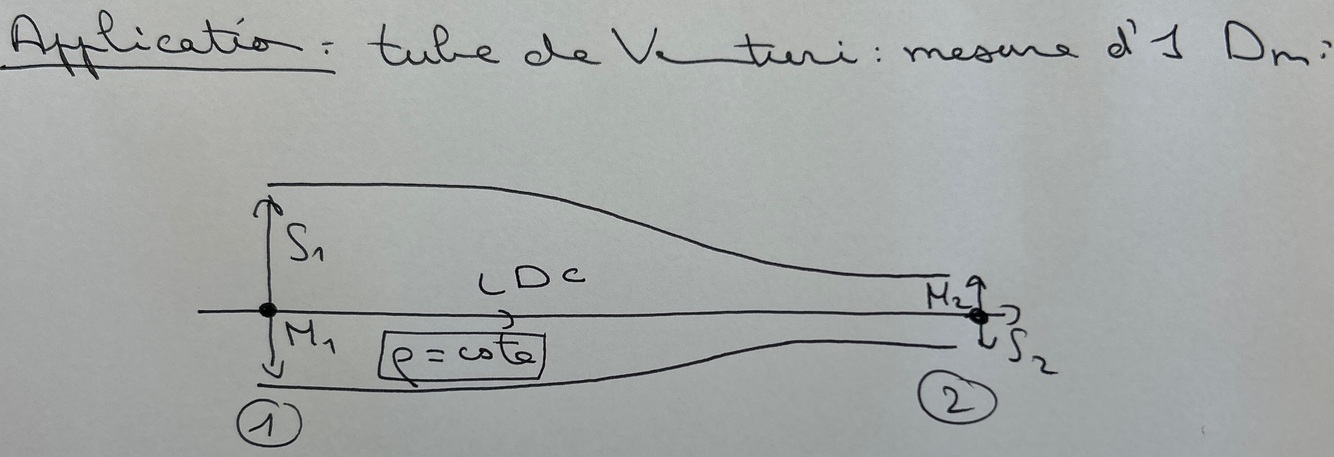 Application : tube de Venturi : mesure d'1 Dm :
S₁
LDC
M₂
M₁
ρ = cste
S₂
① ②